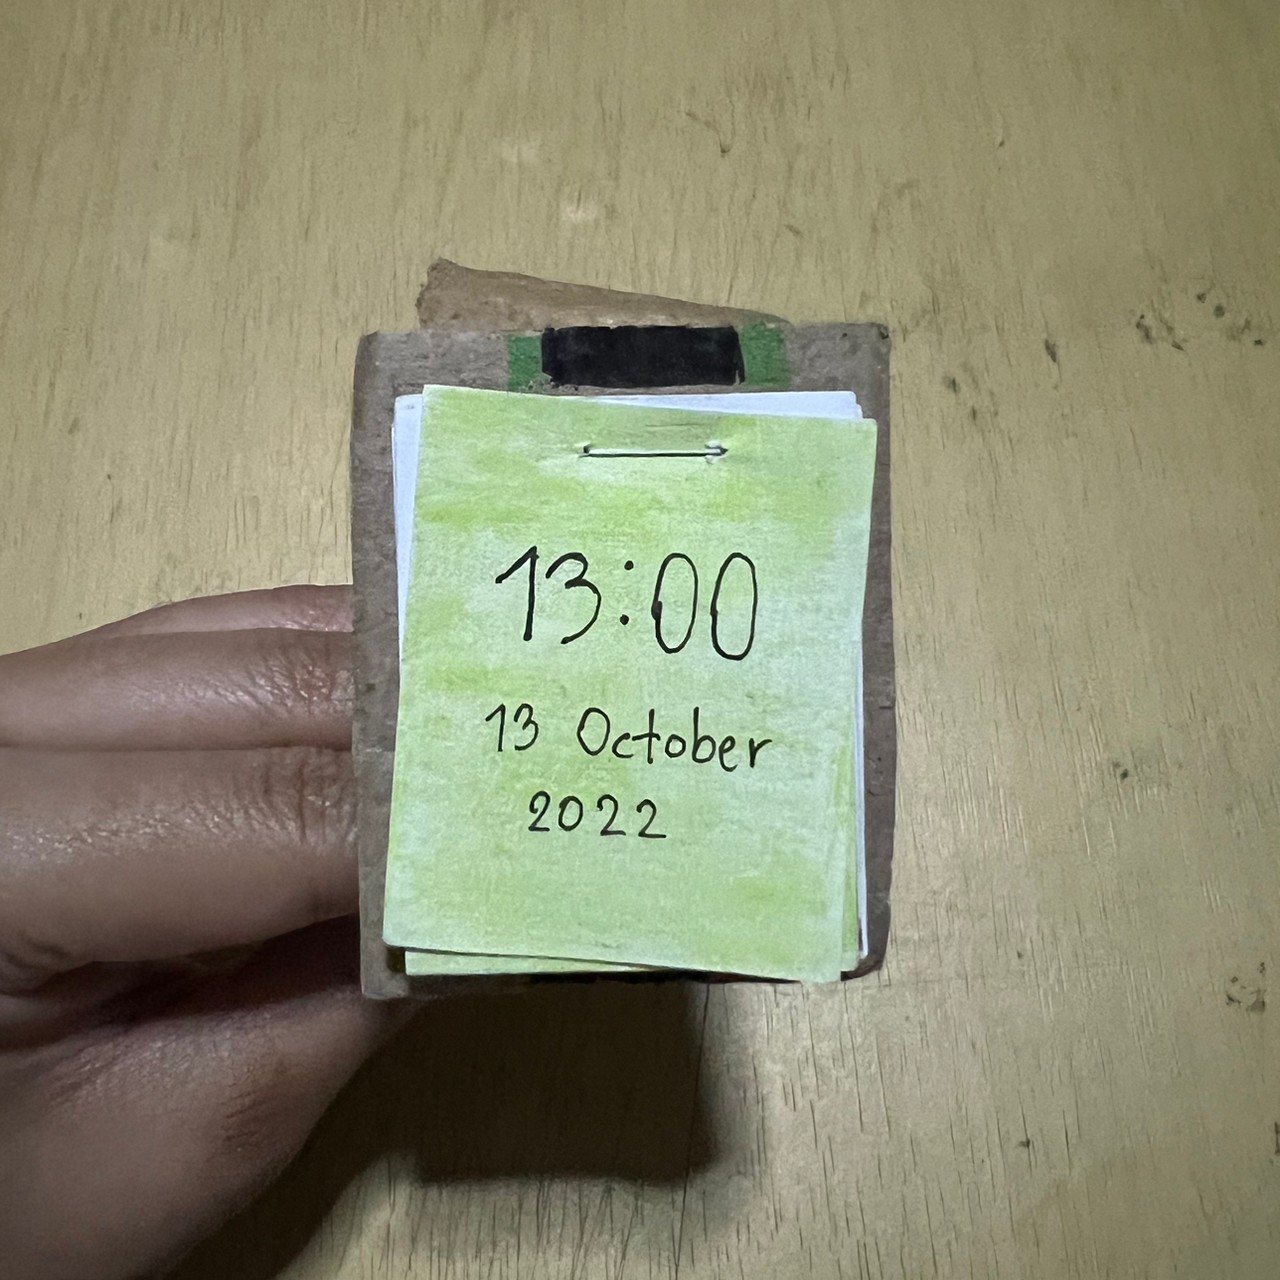 13:00
13 October
2022